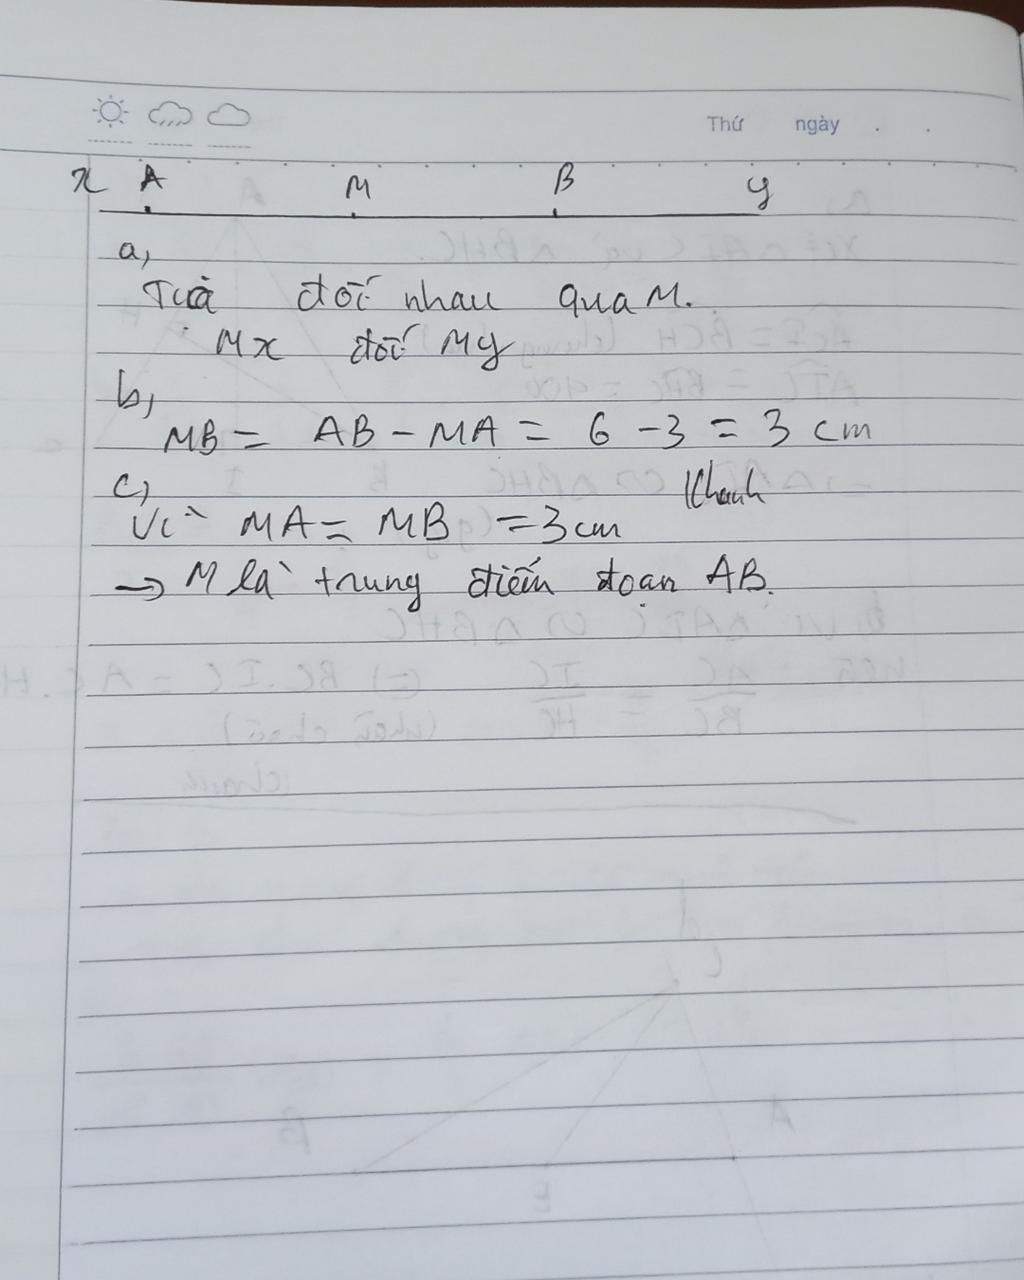 Thứ ngày . .
x A M B y
a,
Tia đối nhau qua M.
Mx đối My
b,
MB = AB - MA = 6 - 3 = 3 cm
c, Khanh
Vì MA = MB = 3 cm
→ M là trung điểm đoạn AB.